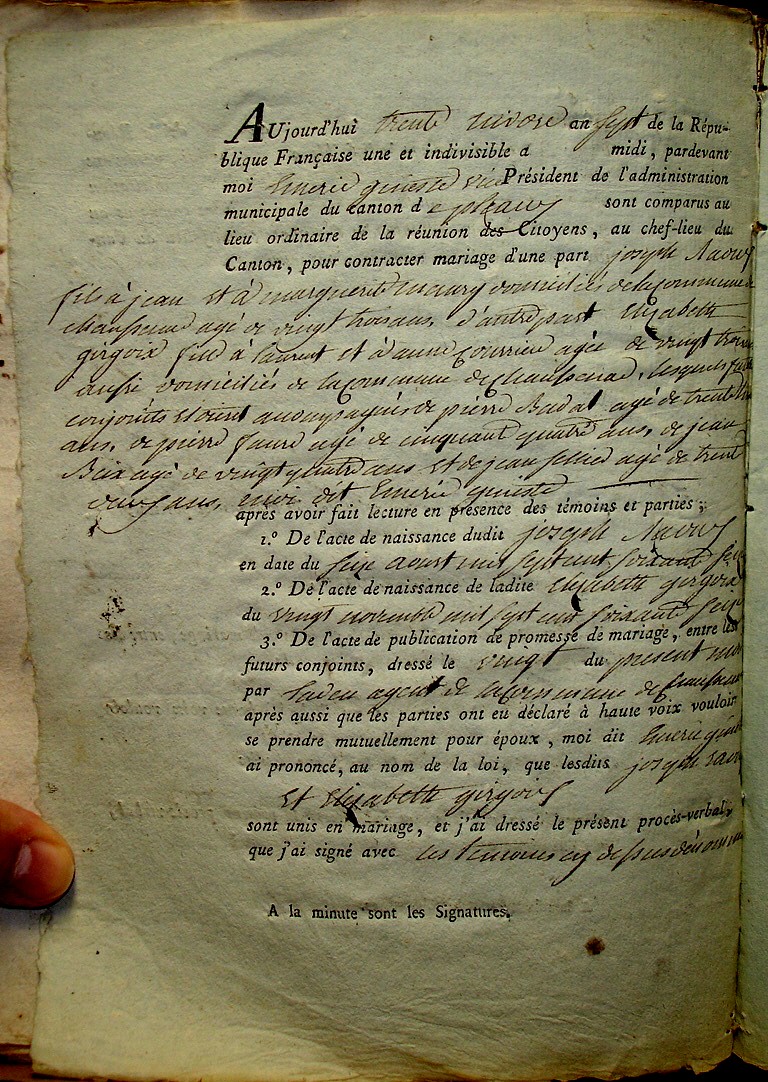 AUjourd'hui trente nivose an sept de la Répu-
blique Française une et indivisible a midi, pardevant
moi Emerie gineste Président de l'administration
municipale du canton d e pleaux sont comparus au
lieu ordinaire de la réunion des Citoyens, au chef-lieu du
Canton, pour contracter mariage d'une part joseph
fils à jean et à marguerite maury domiciliés de la commune de
chaussenac agé de vingt trois ans, d'autre part Elizabeth
girgoix fille à laurent et à anne Courrieu agée de vingt trois
aussi domiciliés de la Commune de Chaussenac, lesquels futurs
conjoints étoint accompagnés de pierre Badal agé de trente
ans, de pierre faure agé de cinquant quatre ans, de jean
Baix agé de vingt quatre ans et de jean agé de trente
ans, moi dit Emerie gineste
après avoir fait lecture en présence des témoins et parties;
1.° De l'acte de naissance dudit joseph
en date du seize aoust mil sept cent soixante seize
2.° De l'acte de naissance de ladite Elizabeth girgoix
du vingt novembre mil sept cent soixante seize
3.° De l'acte de publication de promesse de mariage, entre les
futurs conjoints, dressé le vingt du present mois
par agent de la Commune de chaussenac
après aussi que les parties ont eu déclaré à haute voix vouloir
se prendre mutuellement pour époux, moi dit Emerie gineste
ai prononcé, au nom de la loi, que lesdits joseph
Et Elizabeth girgoix
sont unis en mariage, et j'ai dressé le présent procès-verbal,
que j'ai signé avec les temoins cy dessus dénommés
A la minute sont les Signatures.